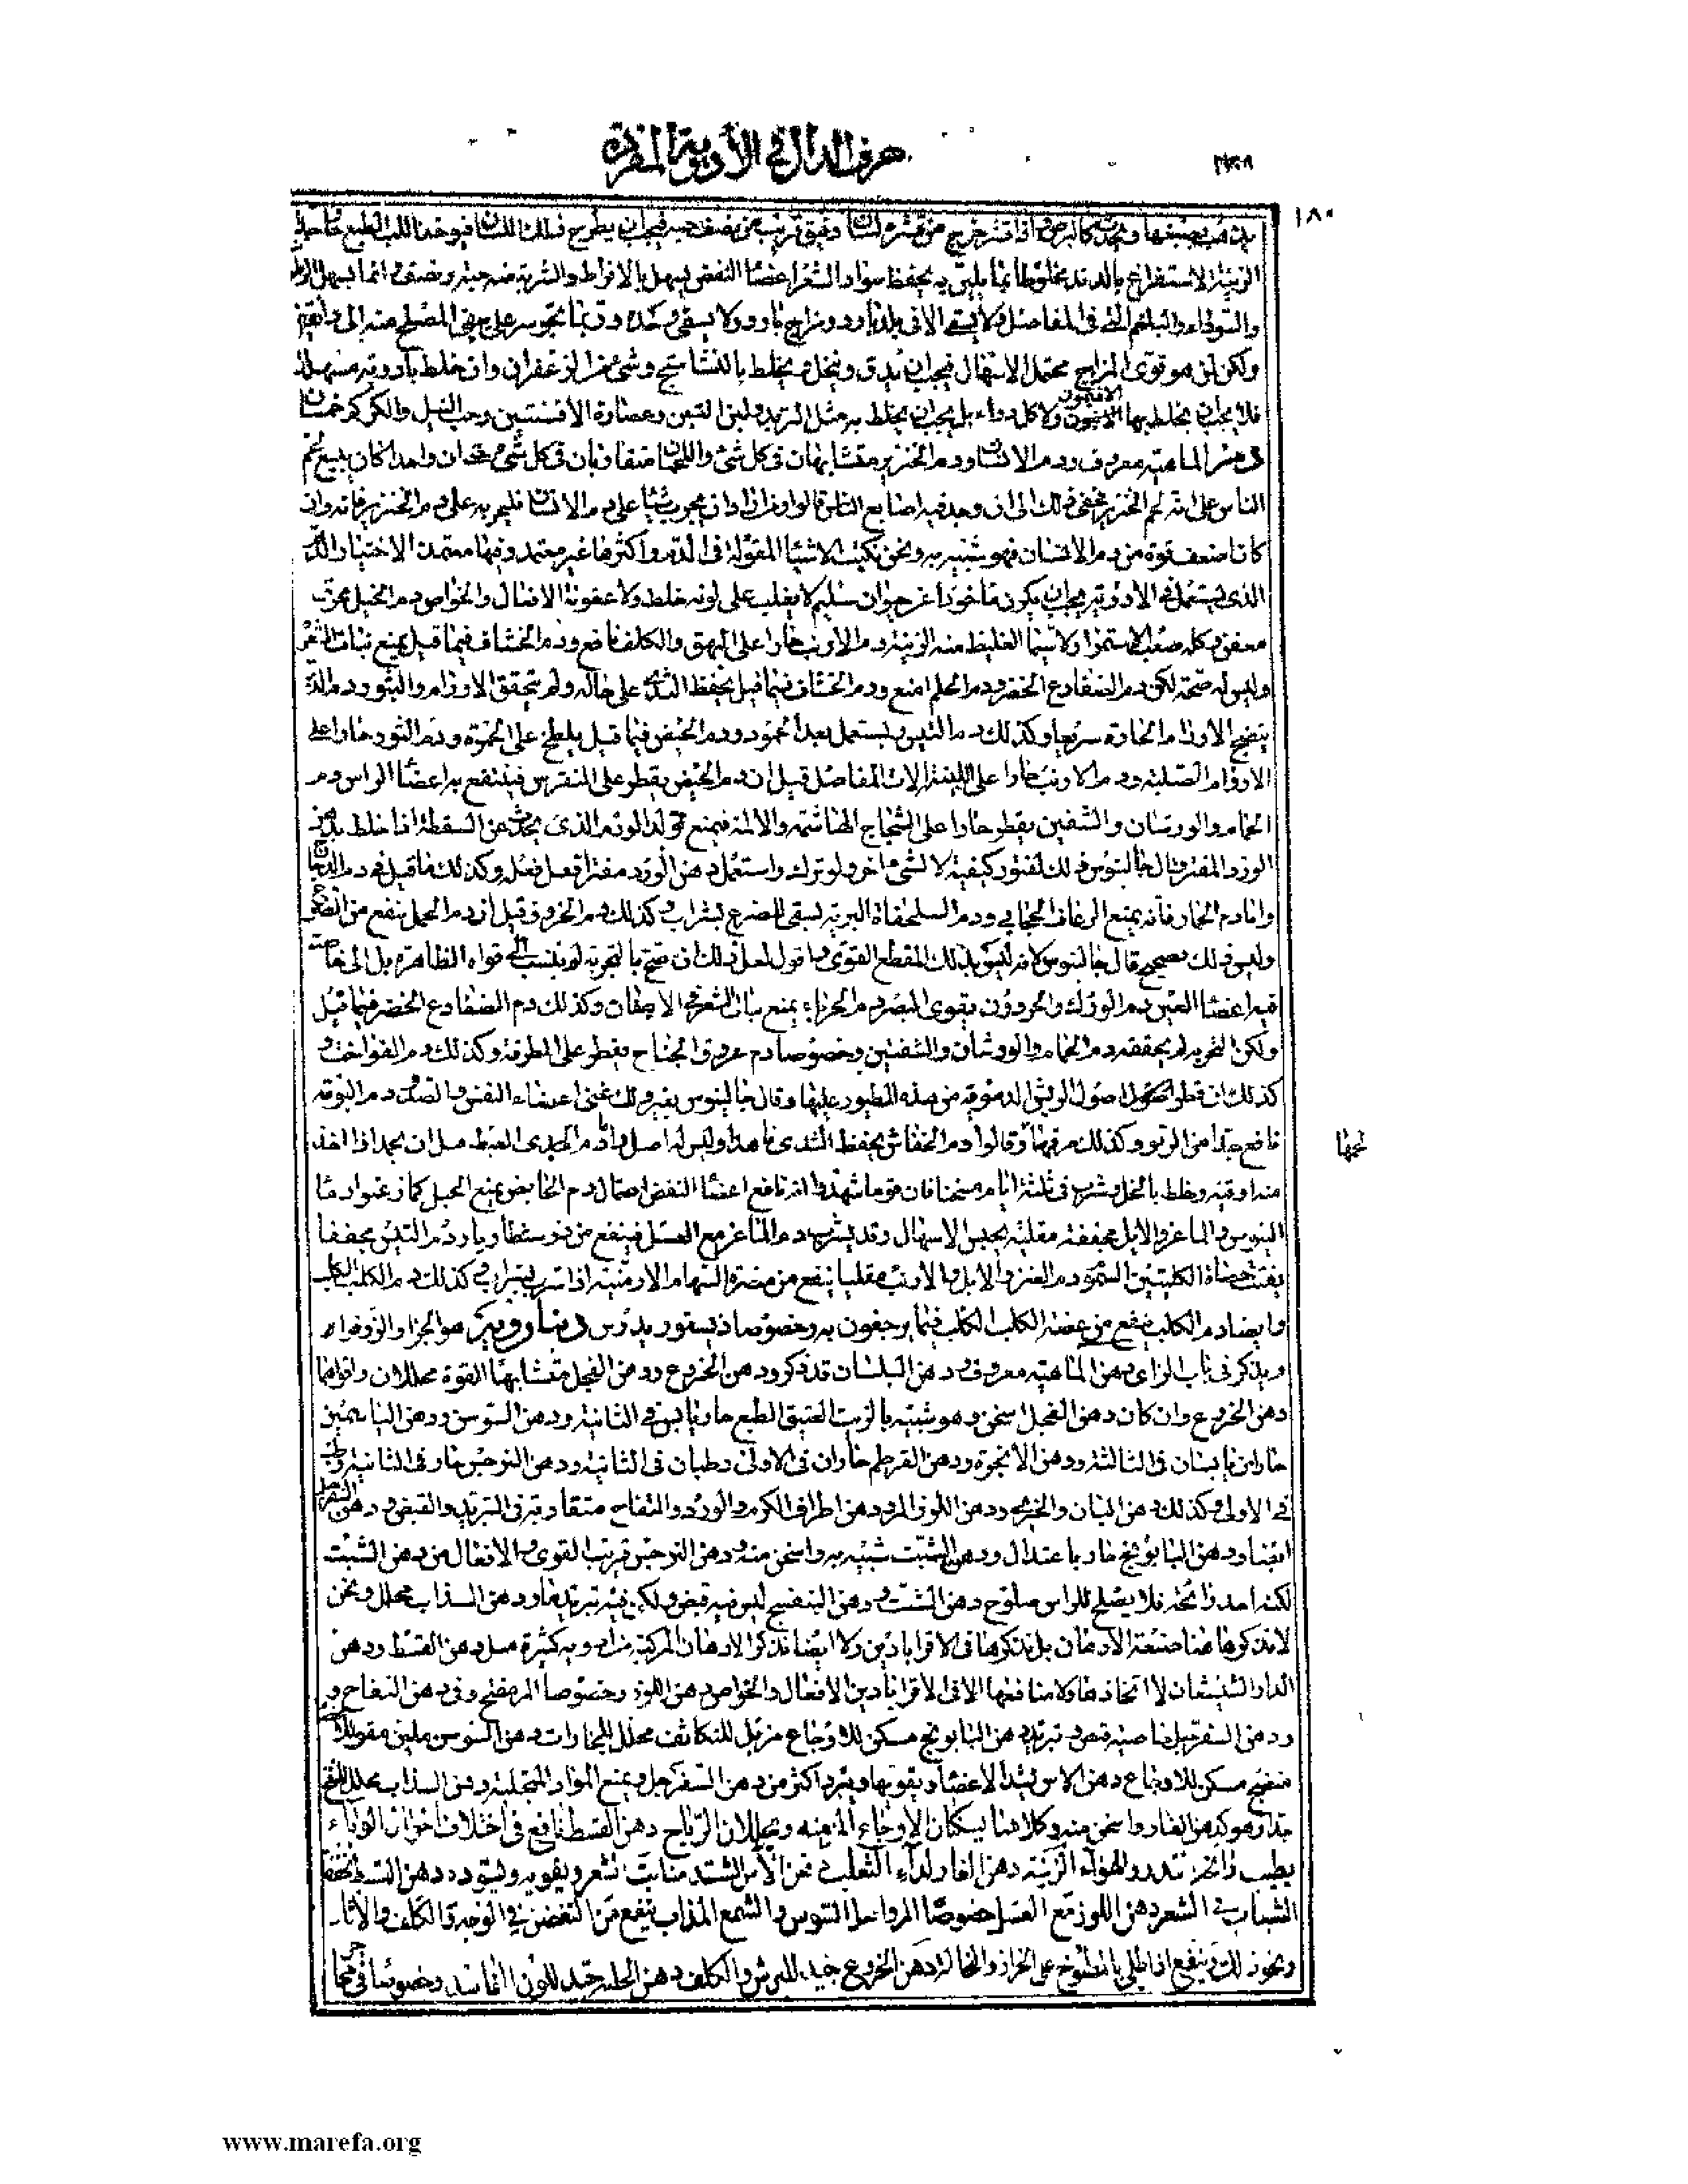 حرف الدال في الأدوية المفردة
١٨٠
الزينة الاستفراغ بالدند مخلوطا بما يليق به يحفظ سواد الشعر اعضا النفض يسهل بالافراط والشربة منه حبة ونصف انما يسهل
والسوداء والبلغم التي في المفاصل ولا يسقى الا في بلد بارد ومزاج بارد ولا يسقى وحده وربما تجوسر على سقى المصلح منه الى دانقين
ولكن لمن هو قوي المزاج محتمل الاسهال فيجب ان يدق وينخل ويخلط بالنشاستج وشئ من الزعفران وان خلط بادوية مسهلة
فلا يجب ان يخلط بها الافيون ولا كل دواء بل يجب ان يخلط به مثل التربد ولبن التين وعصارة الافسنتين وحب النيل والكركم خمسان
دم الماهية معروف ودم الانسان ودم الخنزير متشابهان في كل شئ واللحمان متقاربان في كل شئ حتى ان واحدا كان يبيع لحم
الناس على انه لحم الخنزير فخفى ذلك الى ان وجد فيه اصابع الناس قالوا ومن اراد ان يجرب شيئا على دم الانسان فليجربه على دم الخنزير فانه وان
كان اضعف قوة من دم الانسان فهو شبيه به ونحن نكتب الاشيا المقولة في الدم واكثرها غير معتمد وفيها معتمدة الاختيار الدم
الذي يستعمل في الادوية يجب ان يكون ماخوذا عن حيوان سليم لا يغلب على لونه خلط ولا عفونة الافعال والخواص دم الخيل محرق
معفن وكله صعب الاستمرا ولا سيما الغليظ منه الزينة دم الارنب حارا على البهق والكلف نافع ودم الخشاف فيما قيل يمنع نبات الشعر
وليس له صحة لكن دم الضفادع الخضر ودم الحلم امنع ودم الخشاف فيما قيل يحفظ الثدي على حاله ولم يتحقق الاورام والبثور دم
ينضج الاورام الحارة سريعا وكذلك دم التيس ويستعمل بعد الجمود ودم الحيض فيما قيل يلطخ على الجمرة ودم الثور حارا على
الاورام الصلبة ودم الارنب حارا على اللينة الات المفاصل قيل ان دم الحيض يقطر على النقرس فينتفع به اعضا الراس دم
الحمام والورشان والشفنين يقطر حارا على الشجاج الهاشمة والامة فيمنع تولد الورم الذي يحدث عن السقطة اذا خلط بدهن
الورد المفتر قال جالينوس ذلك لفتور كيفيته لا لشئ اخر ولو ترك واستعمل دهن الورد مفترا فعل فعله وكذلك ما قيل في دم الدجاج
واما دم الحمار فانه يمنع الرعاف الحجابي ودم السلحفاة البرية يسقى للصرع بشراب وكذلك دم الخروف قيل ان دم الجمل ينفع من الصرع
وليس ذلك بصحيح قال جالينوس لانه ليس بذلك المقطع القوي واقول لعل ذلك ان صح بالتجربة لم ينسب الى قواه الظاهرة بل الى خاصة
فيه اعضا العين دم الورل والحرذون يقوي البصر دم الحرباء يمنع نبات الشعر في الاجفان وكذلك دم الضفادع الخضر فيما قيل
ولكن التجربة لم يحققه دم الحمام والورشان والشفنين وخصوصا دم عروق الجناح يقطر على الطرفة وكذلك دم الفواخت و
كذلك ان قطر اصول الريش الدموية من هذه الطيور عليها وقال جالينوس بغير ذلك غنى اعضاء النفس والصدر دم البومة
نافع جدا من الربو وكذلك مرقها وقالوا دم الخفاش يحفظ الثدي ناهدا وليس له اصل واما دم الجدي العبيط قبل ان يجمد اذا اخذ
لحمها
منه اوقية وخلط بالخل وشرب في ثلثة ايام مسخنا فان قوما شهدوا انه نافع اعضا النفض احتمال دم الحايض يمنع الحبل كما زعموا دما
التيوس والماعز والايل مجففة مقلية يحبس الاسهال وقد يشرب دم الماعز مع العسل فينفع من ذوسنطاريا دم التيس مجففا
يفتت حصاة الكليتين السموم دم العنز والايل والارنب مقليا ينفع من مضرة السهام الارمنية اذا شرب بشراب وكذلك دم الكلب
وايضا دم الكلب ينفع من عضة الكلب الكلب فيما يرجفون به وخصوصا ذيسقوريدوس
ويذكر في باب الزاي دهن الماهية معروف دهن البلسان قد ذكر ودهن الخروع ودهن الفجل متشابها القوة محللان واقواهما
دهن الخروع وان كان دهن الفجل اسخن وهو شبيه بالزيت العتيق الطبع حار يابس في الثانية ودهن السوسن ودهن الياسمين
حاران يابسان في الثالثة ودهن الانجرة ودهن القرطم حاران في الاولى رطبان في الثانية ودهن النرجس حار في الثانية رطب
في الاولى وكذلك دهن البان والخيري ودهن اللوز المر ودهن اطراف الكرم والورد والتفاح متقاربة في التبريد والقبض ودهن السفرجل
ايضا ودهن البابونج حار باعتدال ودهن الشبت شبيه به واسخن منه ودهن النرجس قريب القوى والافعال من دهن الشبت
لكنه احد رائحة فلا يصلح للراس صلوح دهن الشبت ودهن البنفسج ليس فيه قبض ولكن فيه تبريد ما ودهن السذاب محلل ونحن
لا نذكر هاهنا صنعة الادهان بل نذكرها في الاقراباذين ولا ايضا نذكر الادهان المركبة من ادوية كثيرة مثل دهن القسط ودهن
الدار الشيشعان لا اتخاذها ولا منافعها الا في الاقراباذين الافعال والخواص دهن اللوز وخصوصا المر مفتح وفي دهن التفاح
ودهن السفرجل خاصية قبض وتبريد دهن البابونج مسكن للاوجاع مزيل للتكاثف محلل للبخارات دهن السوسن ملين مقو
منضج مسكن للاوجاع دهن الاس يشد الاعضا ويقويها ويبرد اكثر من دهن السفرجل ويمنع المواد المتحلبة ودهن السذاب محلل للنفخ
جدا وهو كدهن الغار واسخن منه وكلاهما يسكنان الاوجاع المزمنة ويحللان الرياح دهن القسط نافع في اختلاف احوال الوباء
يطيب رائحة الزينة دهن الغار لداء الثعلب دهن الآس يشد منابت الشعر ويقويه ويسوده دهن القسط يحفظ
الشباب في الشعر دهن اللوز مع العسل خصوصا المر واصل السوسن والشمع المذاب ينفع من التغضن في الوجه والكلف والآثار
ونحو ذلك وينفع اذا طلي بالمطبوخ على الحزاز والنخالة دهن الخروع جيد للبرش والكلف دهن الحلبة جيد للون الفاسد وخصوصا في
www.marefa.org